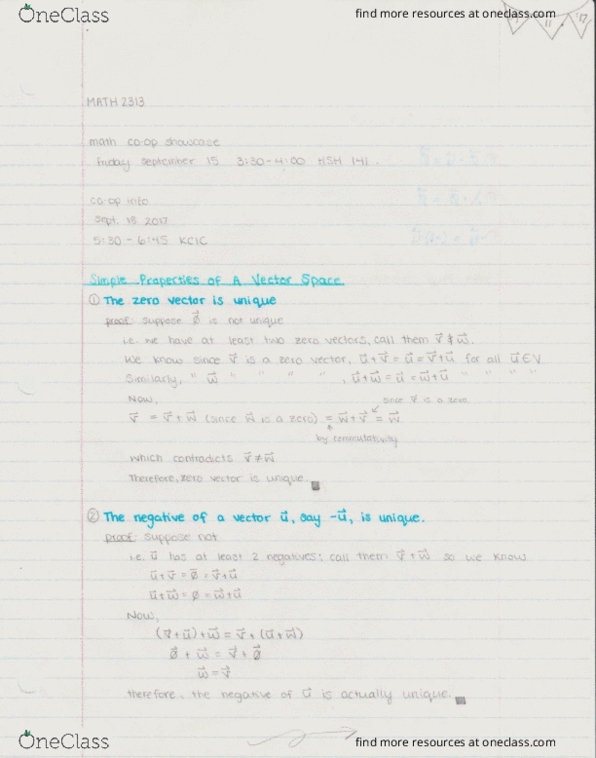 OneClass
find more resources at oneclass.com
11
'17
MATH 2313
math co-op showcase
Friday september 15 3:30-4:00 KSH 141.
co-op info
Sept. 18 2017
5:30 - 6:45 KCIC
Simple Properties of A Vector Space
① The zero vector is unique
proof: suppose 0⃗ is not unique
i.e. we have at least two zero vectors, call them v⃗ & w⃗.
We know since v⃗ is a zero vector, u⃗+v⃗ = u⃗ = v⃗+u⃗ for all u⃗∈V
Similarly, " w⃗ " " " " , u⃗+w⃗ = u⃗ = w⃗+u⃗ " " " "
Now,
since v⃗ is a zero
v⃗ = v⃗+w⃗ (since w⃗ is a zero) = w⃗+v⃗ = w⃗
by commutativity
which contradicts v⃗≠w⃗
Therefore, zero vector is unique. ■
② The negative of a vector u⃗, say -u⃗, is unique.
proof: suppose not
i.e. u⃗ has at least 2 negatives; call them v⃗ + w⃗ so we know
u⃗+v⃗ = 0⃗ = v⃗+u⃗
u⃗+w⃗ = 0 = w⃗+u⃗
Now,
(v⃗+u⃗)+w⃗ = v⃗+(u⃗+w⃗)
0⃗ + w⃗ = v⃗+0⃗
w⃗ = v⃗
therefore, the negative of u⃗ is actually unique. ■
OneClass
find more resources at oneclass.com